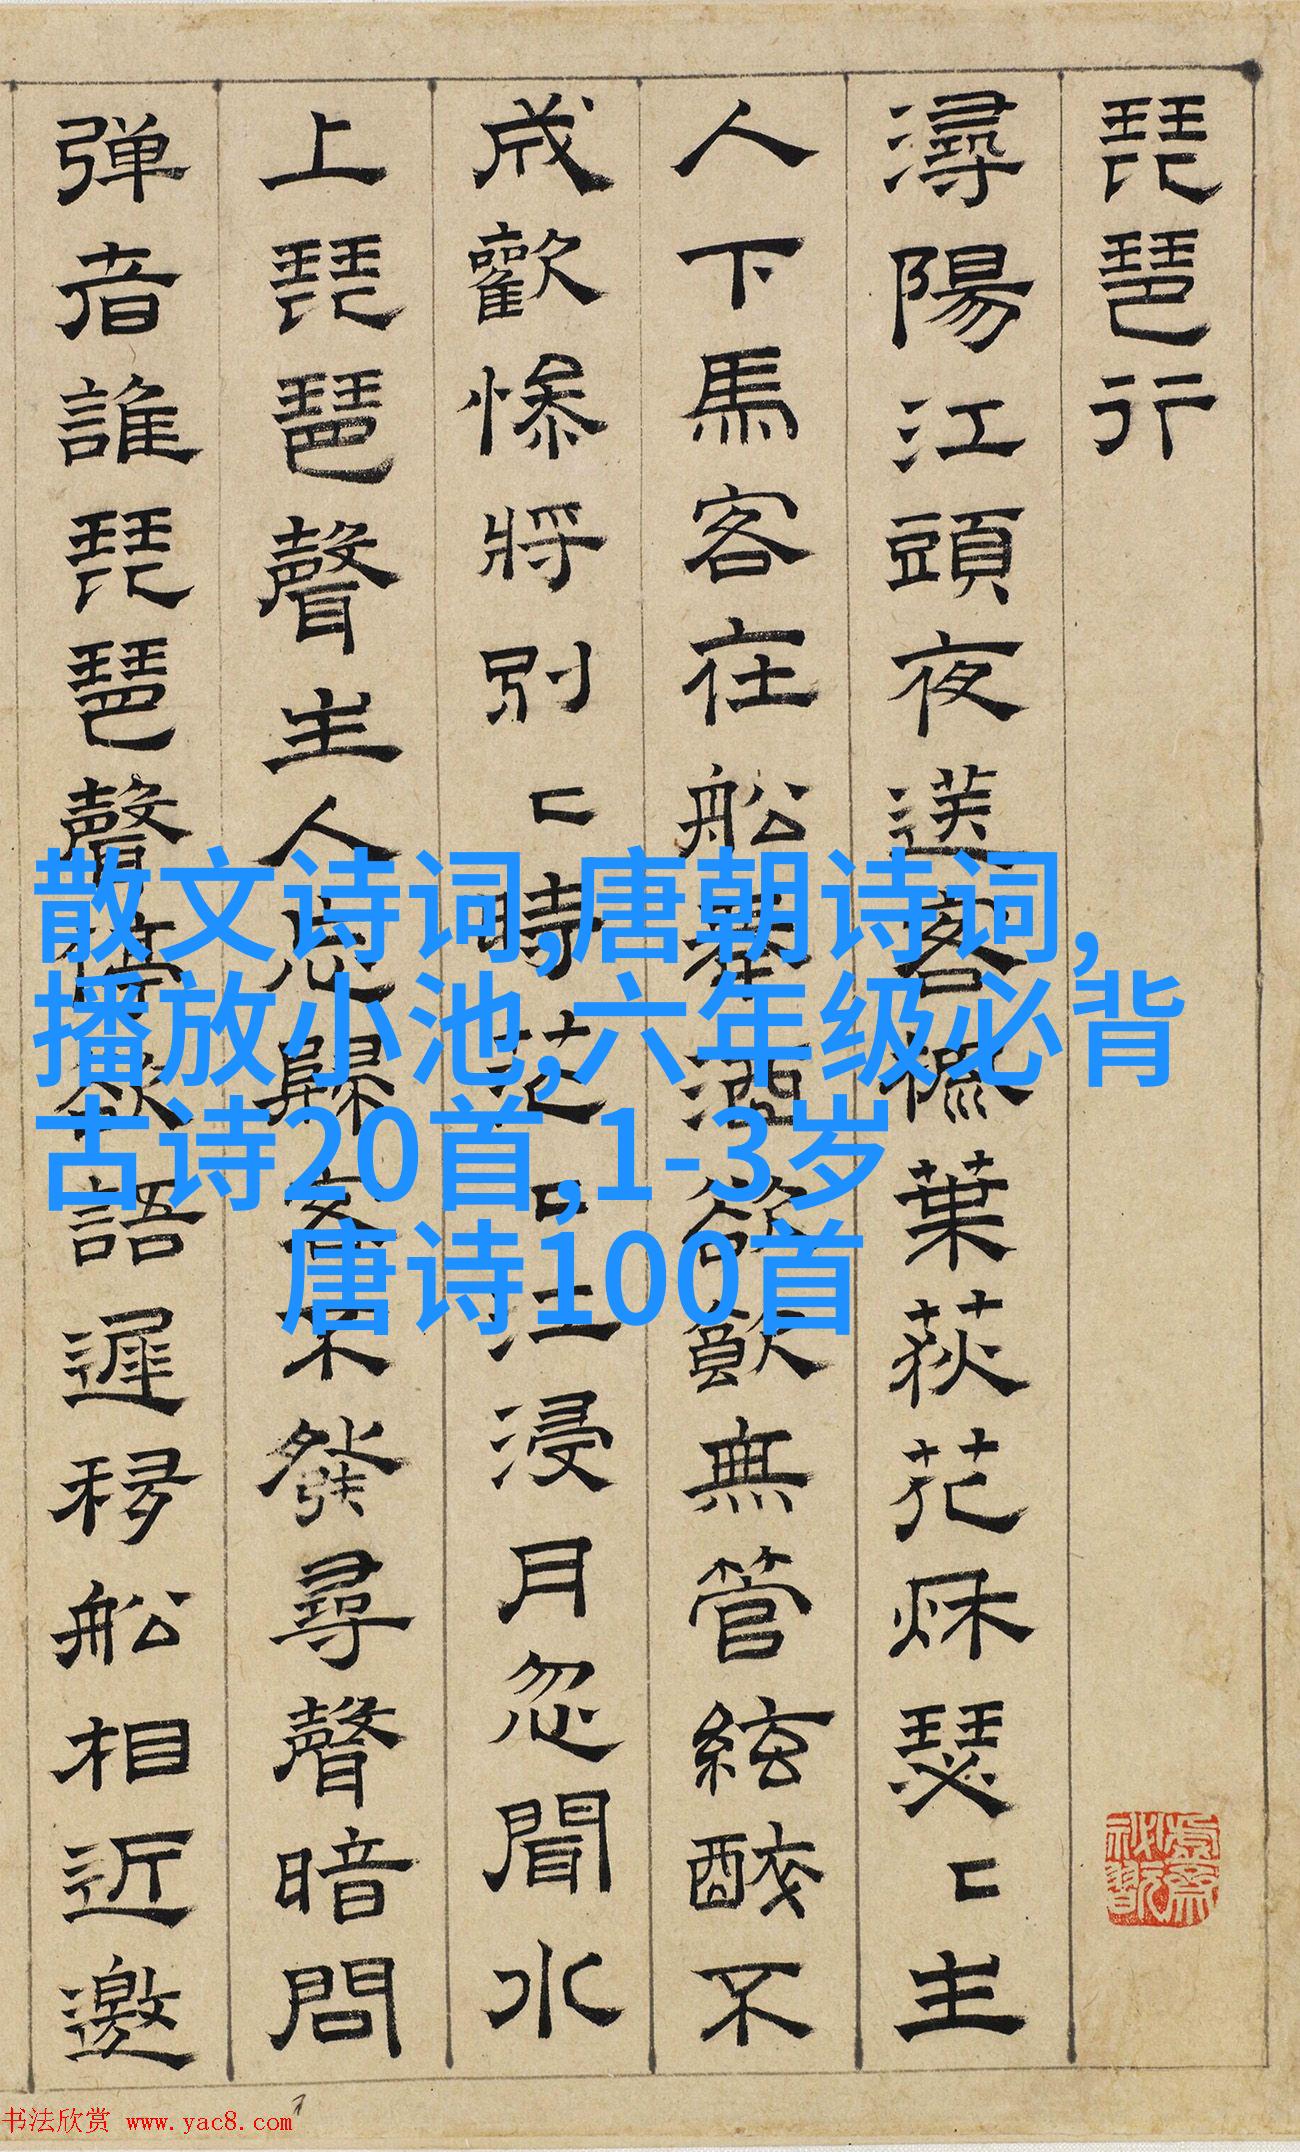 琵琶行
潯陽江頭夜送客楓葉荻花秌瑟〻主
人下馬客在船舉酒欲飲無管絃醉不
成歡慘將別〻時茫〻江浸月忽聞水
上琵琶聲主人忘歸客不發尋聲暗問
弹者誰琵琶聲停欲語遲移船相近邀
散文诗词,唐朝诗词,
播放小池,六年级必背
古诗20首,1-3岁
唐诗100首
书法欣赏 www.yac8.com